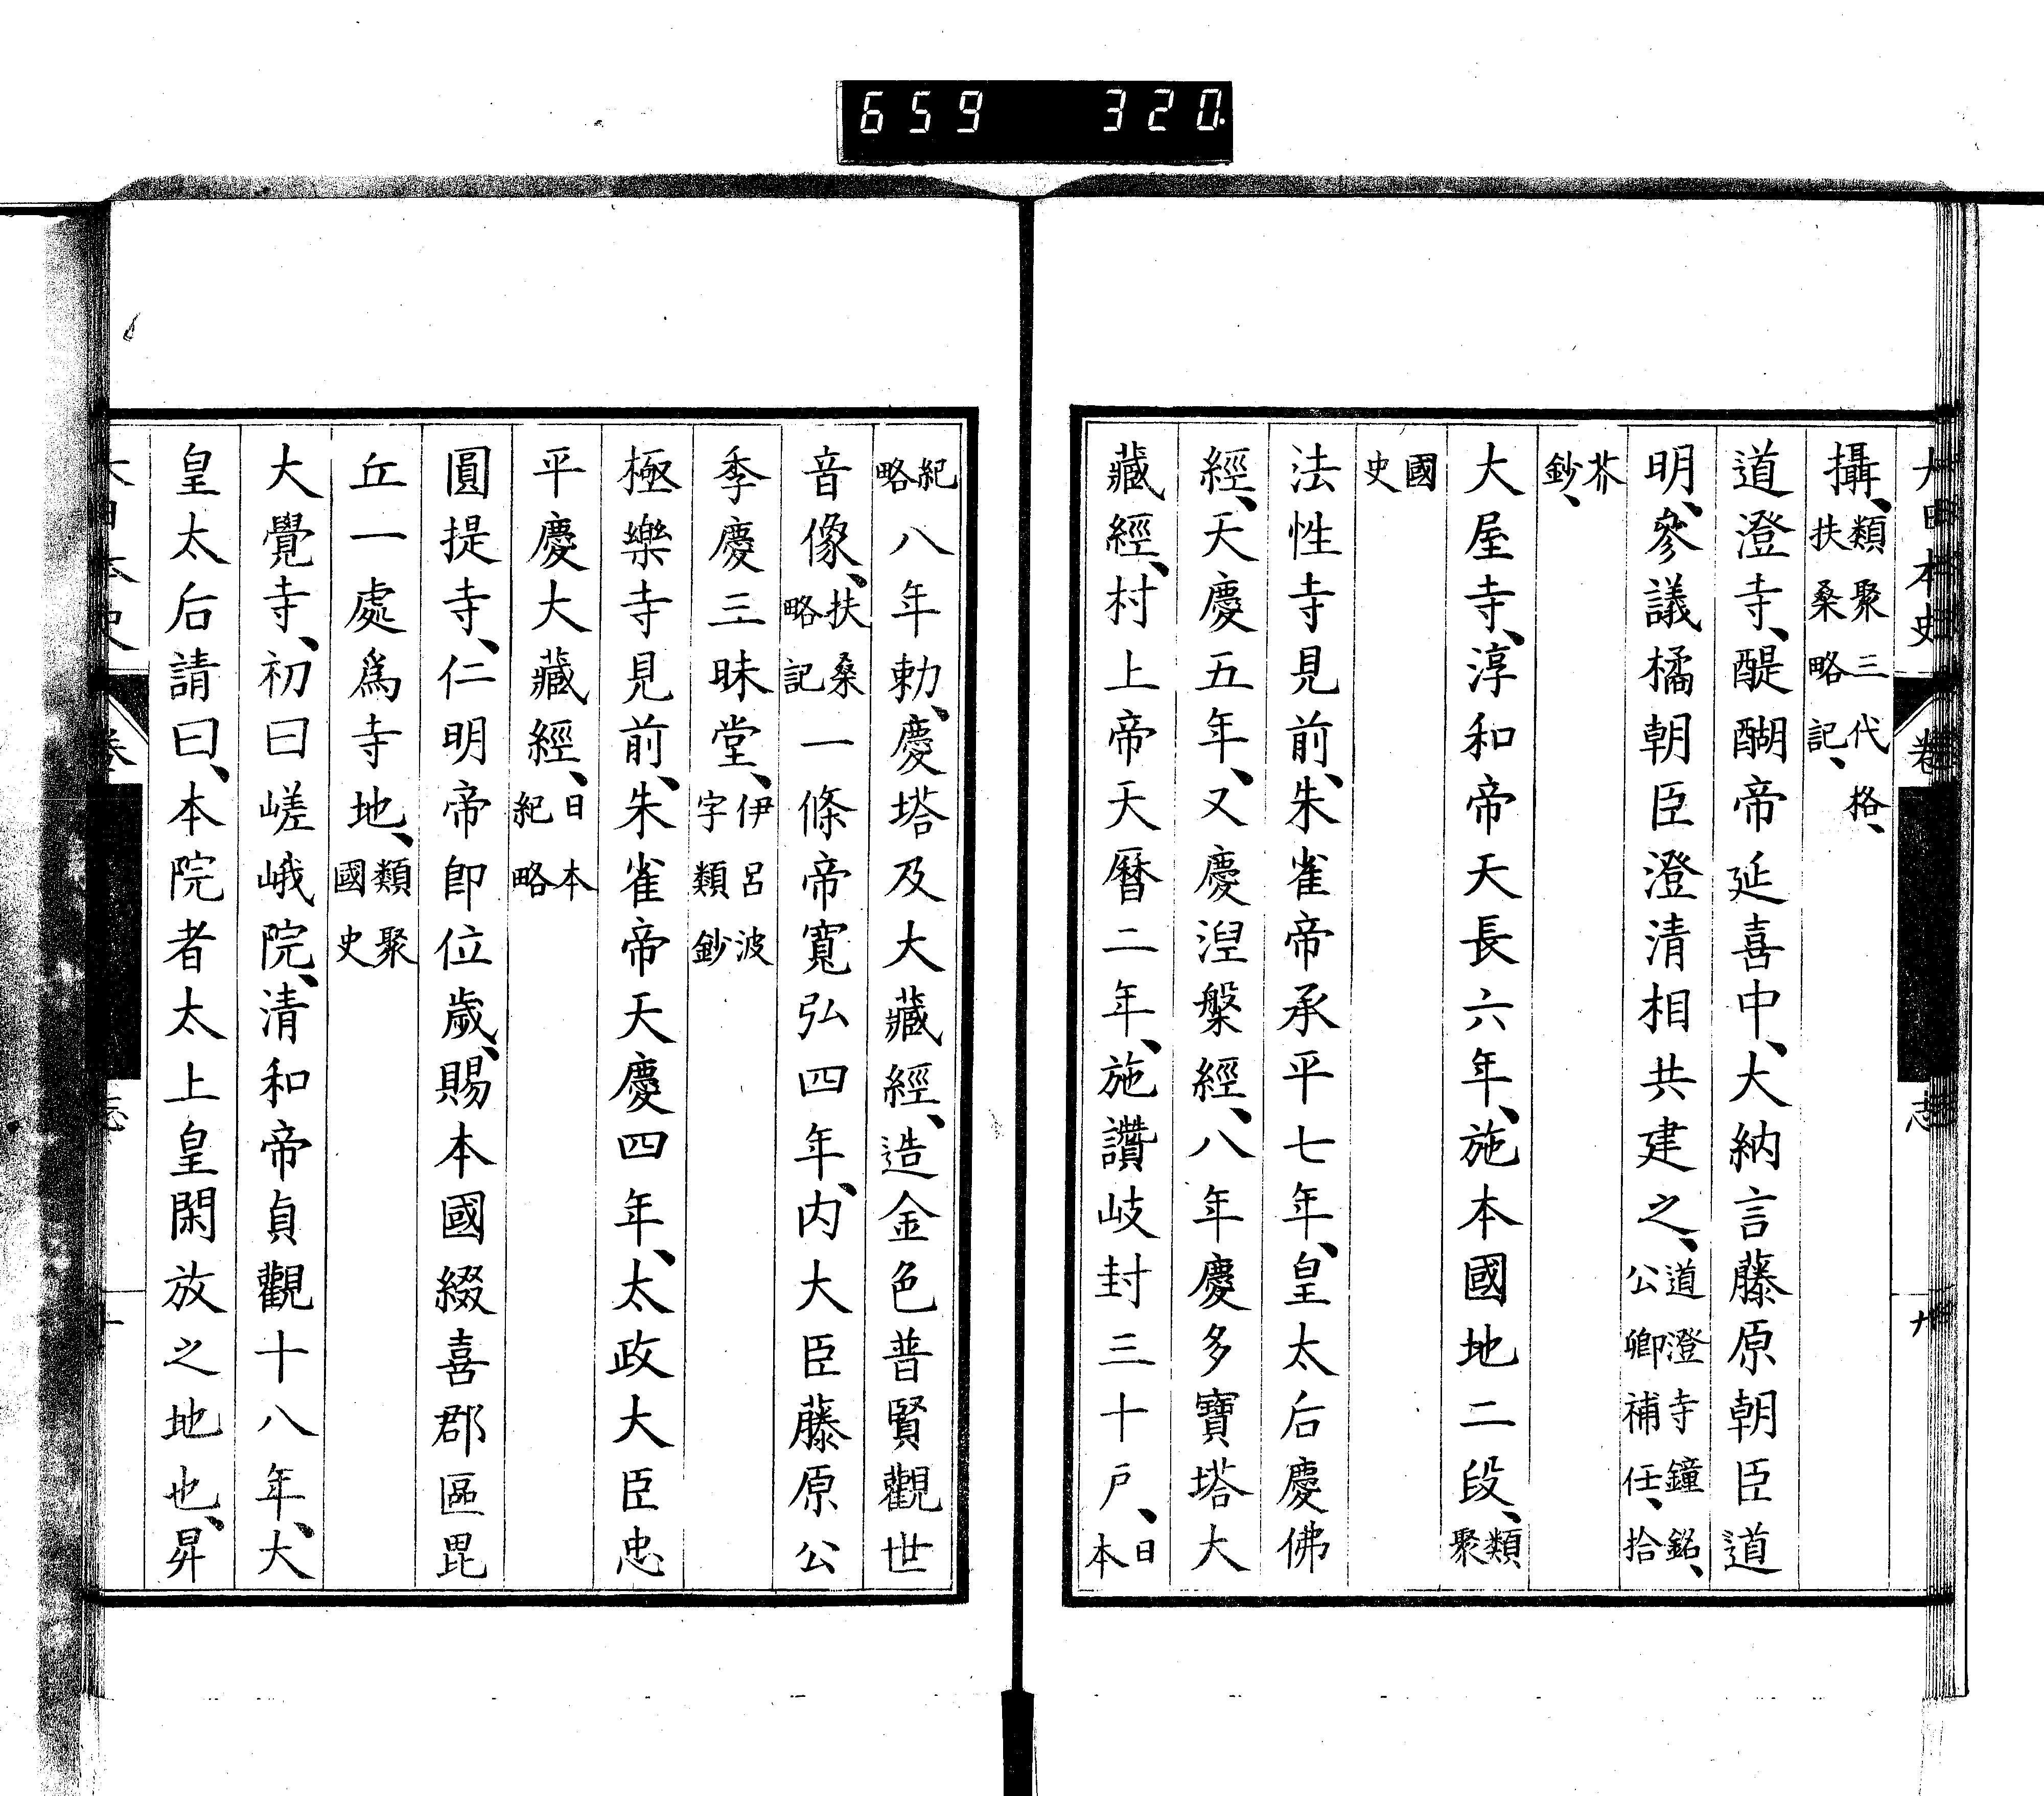 659 320
大日本史 卷 志 九
攝、類聚三代格、扶桑略記、
道澄寺、醍醐帝延喜中、大納言藤原朝臣道
明、參議橘朝臣澄清相共建之、道澄寺鐘銘、公卿補任、拾
芥鈔、
大屋寺、淳和帝天長六年、施本國地二段、類聚
國史
法性寺見前、朱雀帝承平七年、皇太后慶佛
經、天慶五年、又慶涅槃經、八年慶多寶塔大
藏經、村上帝天曆二年、施讚岐封三十戶、日本
紀略八年勅、慶塔及大藏經、造金色普賢觀世
音像、扶桑略記一條帝寬弘四年、內大臣藤原公
季慶三昧堂、伊呂波字類鈔
極樂寺見前、朱雀帝天慶四年、太政大臣忠
平慶大藏經、日本紀略
圓提寺、仁明帝卽位歲、賜本國綴喜郡區毘
丘一處爲寺地、類聚國史
大覺寺、初曰嵯峨院、清和帝貞觀十八年、大
皇太后請曰、本院者太上皇閑放之地也、昇
卷 志